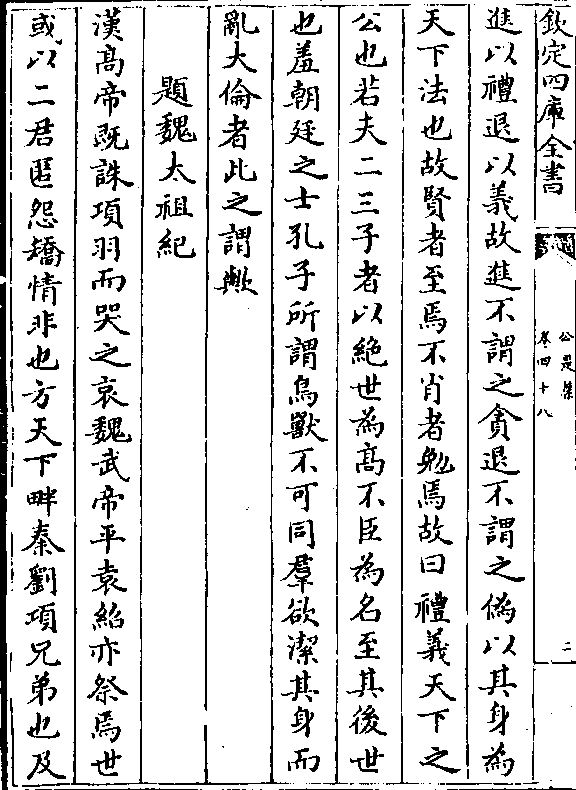 欽定四庫全書
公是集
卷四十八
二
進以禮退以義故進不謂之貪退不謂之偽以其身為
天下法也故賢者至焉不肖者勉焉故曰禮義天下之
公也若夫二三子者以絶世為髙不臣為名至其後世
也羞朝廷之士孔子所謂鳥獸不可同羣欲潔其身而
亂大倫者此之謂歟
題魏太祖紀
漢髙帝既誅項羽而哭之哀魏武帝平袁紹亦祭焉世
或以二君匿怨矯情非也方天下畔秦劉項兄弟也及